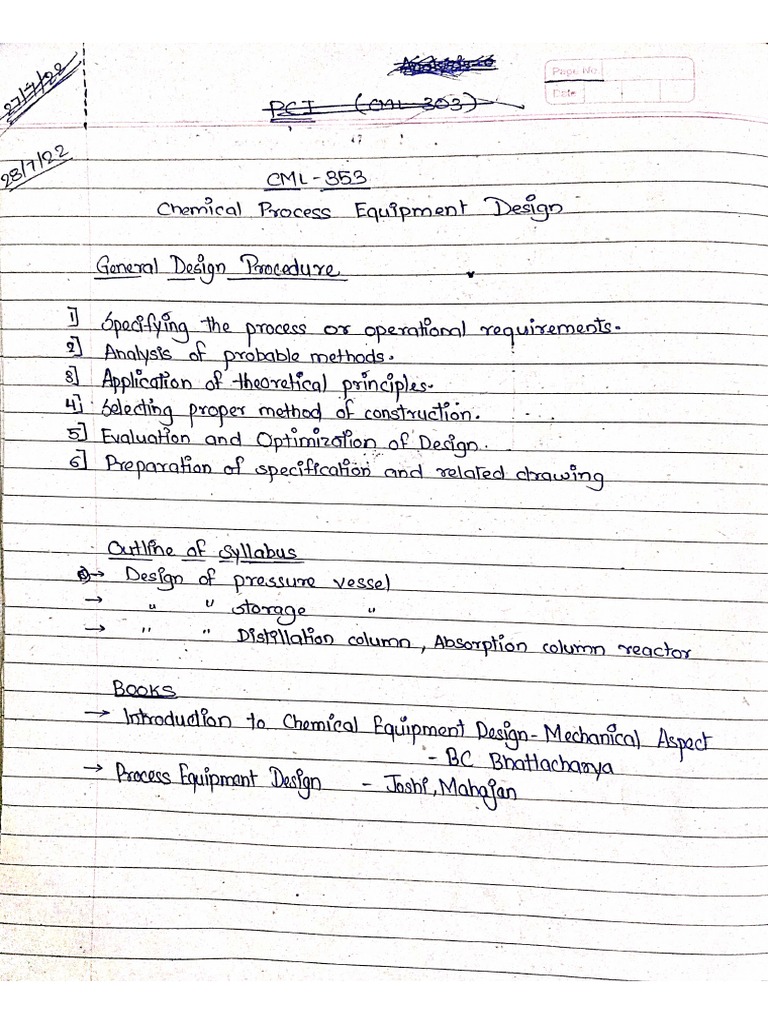 27/7/22
Page No.
Date
PCI (CML 303)
28/7/22
CML-353
Chemical Process Equipment Design
General Design Procedure
1] Specifying the process or operational requirements.
2] Analysis of probable methods.
3] Application of theoretical principles.
4] Selecting proper method of construction.
5] Evaluation and Optimization of Design.
6] Preparation of specification and related drawing
Outline of Syllabus
→ Design of pressure vessel
→ " " storage "
→ " " Distillation column, Absorption column reactor
BOOKS
→ Introduction to Chemical Equipment Design - Mechanical Aspect
- BC Bhattacharya
→ Process Equipment Design - Joshi, Mahajan